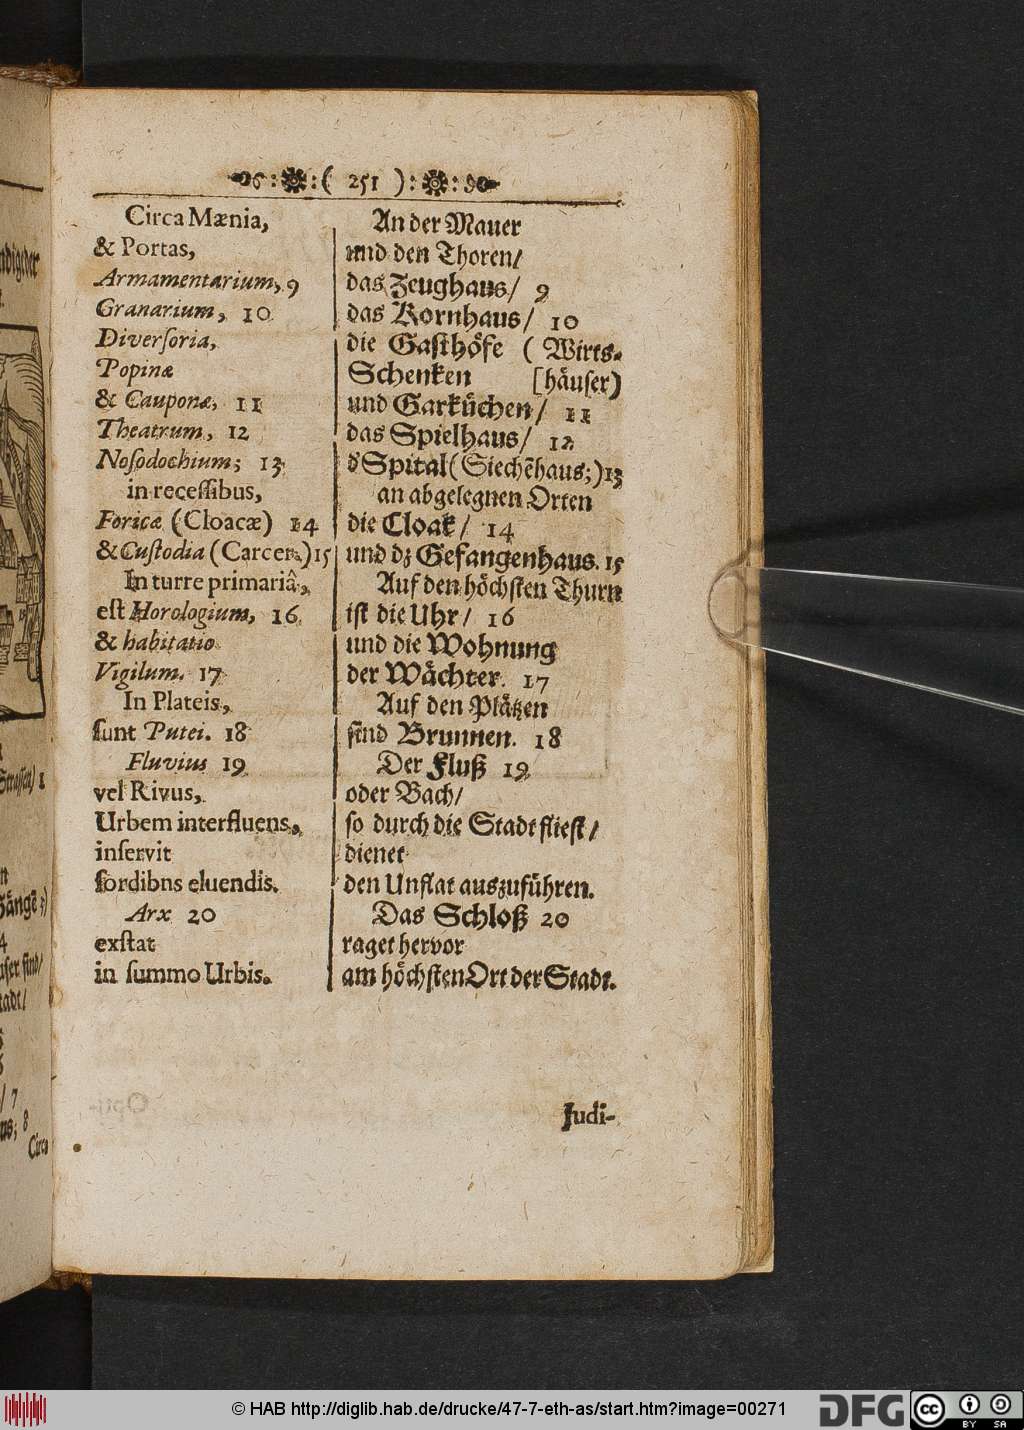 ( 251 )
Circa Mænia,
& Portas,
Armamentarium, 9
Granarium, 10
Diverſoria,
Popinæ
& Cauponæ, 11
Theatrum, 12
Noſodochium; 13
in receſſibus,
Foricæ (Cloacæ) 14
& Cuſtodia (Carcer.) 15
In turre primariâ,
eſt Horologium, 16
& habitatio
Vigilum. 17
In Plateis,
ſunt Putei. 18
Fluvius 19
vel Rivus,
Urbem interfluens,
inſervit
ſordibns eluendis.
Arx 20
exſtat
in ſummo Urbis.
An der Mauer
und den Thoren/
das Zeughaus/ 9
das Kornhaus/ 10
die Gaſthöfe ( Wirts-
Schenken [häuſer)
und Garküchen/ 11
das Spielhaus/ 12
d' Spital (Siechēhaus;) 13
an abgelegnen Orten
die Cloak/ 14
und dz Gefangenhaus. 15
Auf den höchſten Thurn
iſt die Uhr/ 16
und die Wohnung
der Wächter. 17
Auf den Plätzen
ſind Brunnen. 18
Der Fluß 19
oder Bach/
ſo durch die Stadt flieſt/
dienet
den Unflat auszuführen.
Das Schloß 20
raget hervor
am höchſten Ort der Stadt.
Judi-
© HAB http://diglib.hab.de/drucke/47-7-eth-as/start.htm?image=00271
DFG
cc BY SA